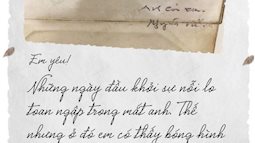 Em yêu!
Những ngày đầu khởi sự nỗi lo
toan ngập trong mắt anh. Thế
nhưng ở đó em có thấy bóng hình